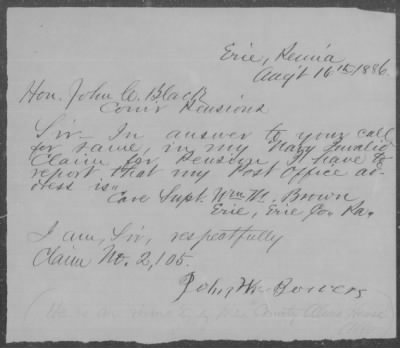 Erie, Penn'a
Aug't 16th 1886.
Hon. John C. Black
Com'r Pensions
Sir - In answer to your call
for same, in my Navy Invalid
Claim for Pension, I have to
report that my Post Office ad-
dress is"
Care Supt. Wm. W. Brown
Erie, Erie Co. Pa.
I am, Sir, respectfully
Claim No. 2,105.
John W. Bowers
(He is an inmate of the County Alms House